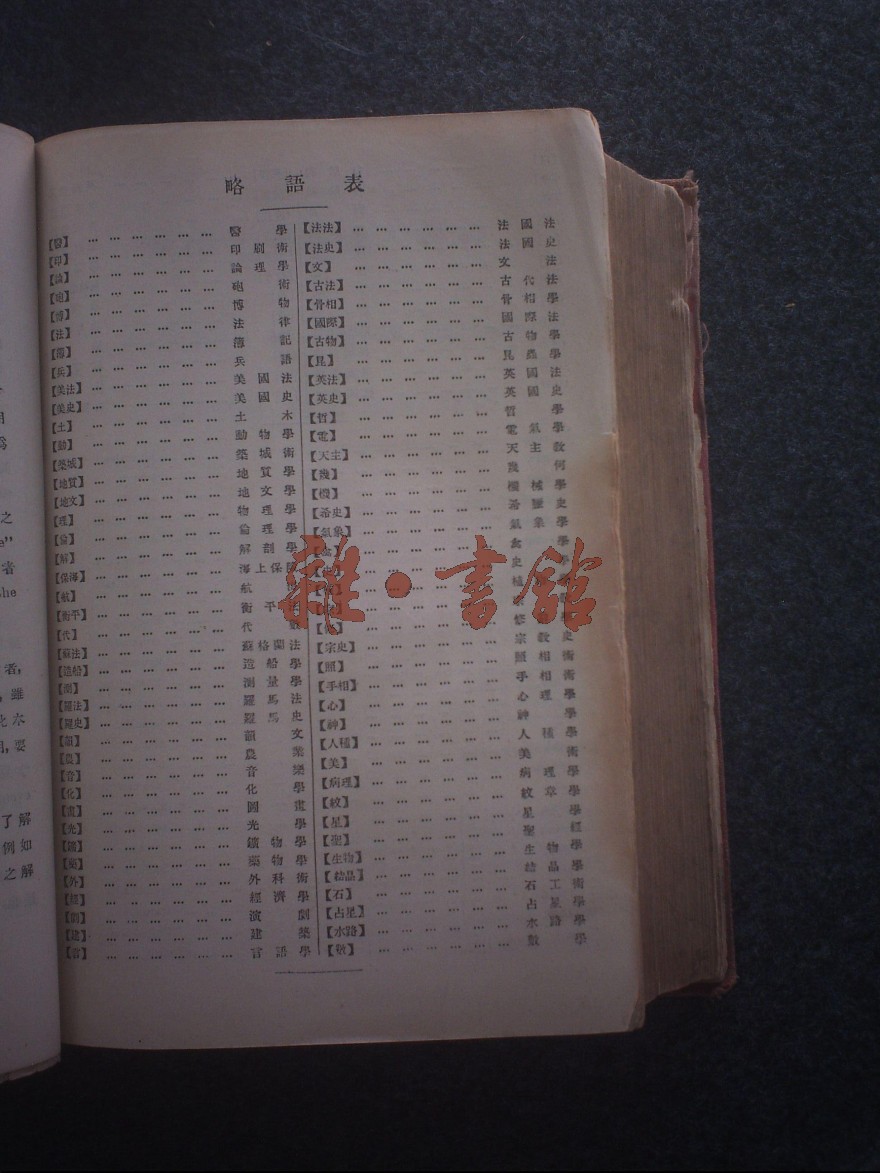 略語表
【醫】 … … … … … … 醫學
【印】 … … … … … … 印刷術
【論】 … … … … … … 論理學
【砲】 … … … … … … 砲術
【博】 … … … … … … 博物
【法】 … … … … … … 法律
【簿】 … … … … … … 簿記
【兵】 … … … … … … 兵語
【美法】 … … … … … … 美國法
【美史】 … … … … … … 美國史
【土】 … … … … … … 土木
【動】 … … … … … … 動物學
【築城】 … … … … … … 築城術
【地質】 … … … … … … 地質學
【地文】 … … … … … … 地文學
【理】 … … … … … … 物理學
【倫】 … … … … … … 倫理學
【解】 … … … … … … 解剖學
【保海】 … … … … … … 海上保險
【航】 … … … … … … 航
【衡平】 … … … … … … 衡平法
【代】 … … … … … … 代數
【蘇法】 … … … … … … 蘇格蘭法
【造船】 … … … … … … 造船學
【測】 … … … … … … 測量學
【羅法】 … … … … … … 羅馬法
【羅史】 … … … … … … 羅馬史
【韻】 … … … … … … 韻文
【農】 … … … … … … 農業
【音】 … … … … … … 音樂
【化】 … … … … … … 化學
【畫】 … … … … … … 圖畫
【光】 … … … … … … 光學
【鑛】 … … … … … … 鑛物學
【藥】 … … … … … … 藥物學
【外】 … … … … … … 外科術
【經】 … … … … … … 經濟學
【劇】 … … … … … … 演劇
【建】 … … … … … … 建築
【言】 … … … … … … 言語學
【法法】 … … … … … … 法國法
【法史】 … … … … … … 法國史
【文】 … … … … … … 文法
【古法】 … … … … … … 古代法
【骨相】 … … … … … … 骨相學
【國際】 … … … … … … 國際法
【古物】 … … … … … … 古物學
【昆】 … … … … … … 昆蟲學
【英法】 … … … … … … 英國法
【英史】 … … … … … … 英國史
【哲】 … … … … … … 哲學
【電】 … … … … … … 電氣學
【天主】 … … … … … … 天主教
【幾】 … … … … … … 幾何
【機】 … … … … … … 機械學
【希史】 … … … … … … 希臘史
【氣象】 … … … … … … 氣象學
【宗史】 … … … … … … 宗教史
【照】 … … … … … … 照相術
【手相】 … … … … … … 手相術
【心】 … … … … … … 心理學
【神】 … … … … … … 神學
【人種】 … … … … … … 人種學
【美】 … … … … … … 美術
【病理】 … … … … … … 病理學
【紋】 … … … … … … 紋章學
【星】 … … … … … … 星學
【聖】 … … … … … … 聖經
【生物】 … … … … … … 生物學
【結晶】 … … … … … … 結晶學
【石】 … … … … … … 石工術
【占星】 … … … … … … 占星學
【水路】 … … … … … … 水路學
【數】 … … … … … … 數學
雜·書館
之
者
者,
雖
要
了解
例如
之解